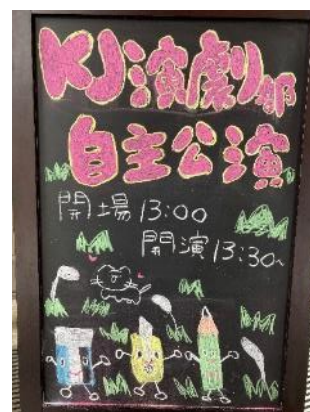 KJ演劇部
自主公演
開場 13:00
開演 13:30~